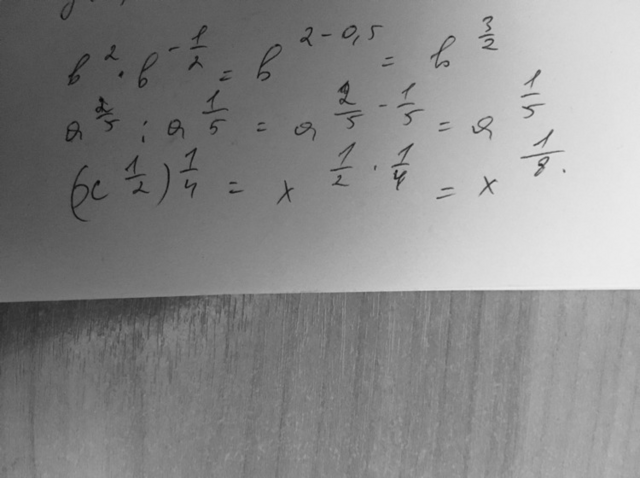 b^2 · b^{-1/2} = b^{2-0,5} = b^{3/2}
a^{2/5} : a^{1/5} = a^{2/5 - 1/5} = a^{1/5}
(x^{1/2})^{1/4} = x^{1/2 · 1/4} = x^{1/8}.